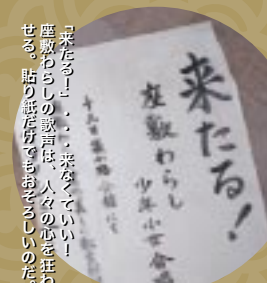 「来たる！」・・・来なくていい！
座敷わらしの歌声は、人々の心を狂わ
せる。貼り紙だけでもおそろしいのだ。
来たる！
座敷わらし
少年少女合唱